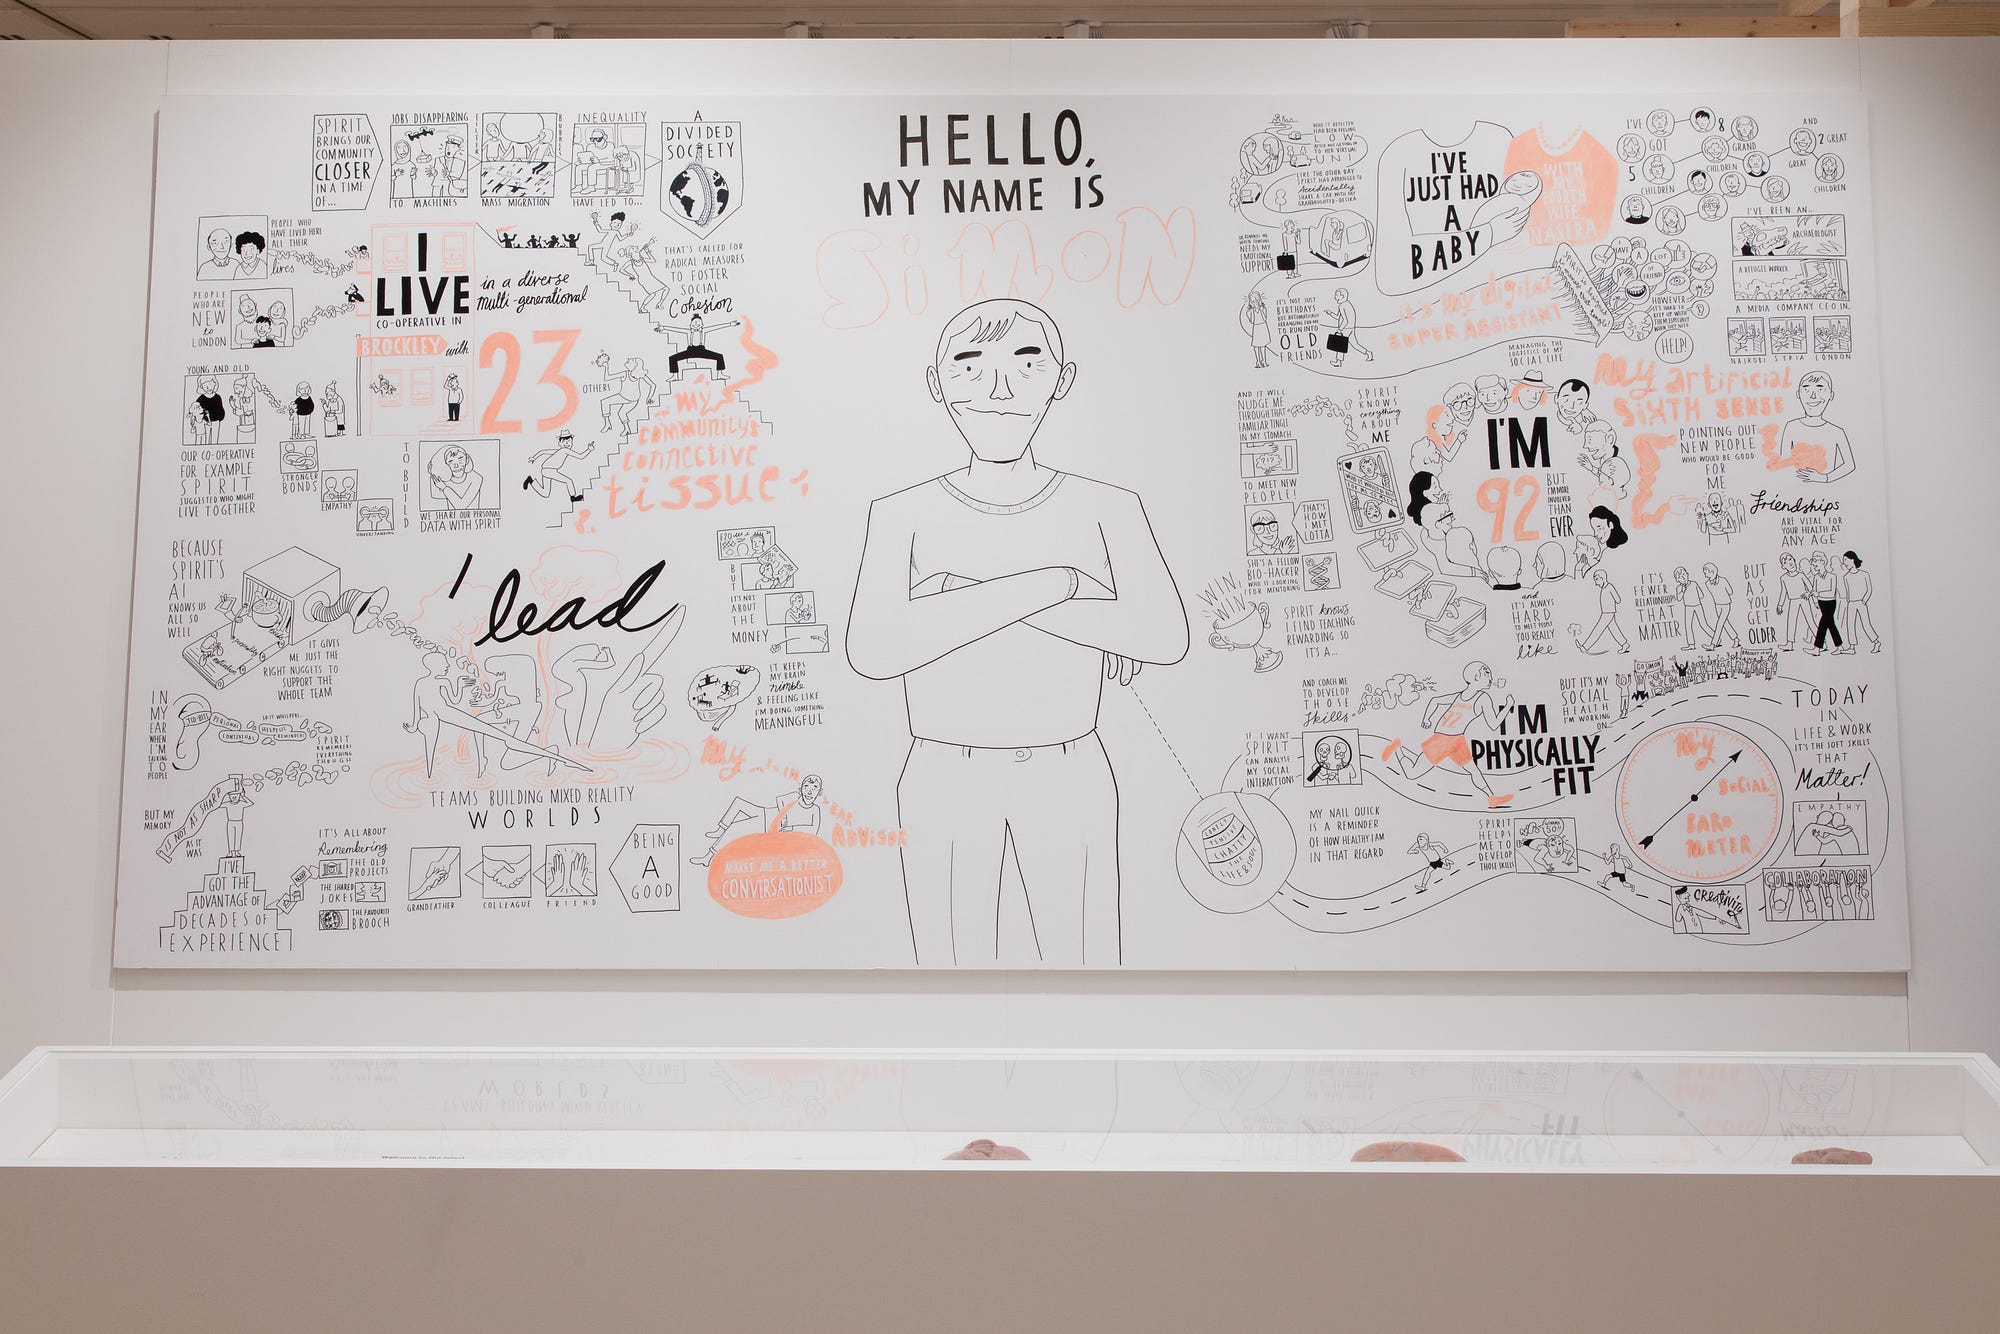 HELLO,
MY NAME IS
SiMON
SPIRIT
BRINGS OUR
COMMUNITY
CLOSER
IN A TIME
OF...
JOBS DISAPPEARING
TO MACHINES
FILTER
BUBBLES
MASS MIGRATION
INEQUALITY
HAVE LED TO...
A
DIVIDED
SOCIETY
THAT'S CALLED FOR
RADICAL MEASURES
TO FOSTER
SOCIAL
Cohesion
PEOPLE WHO
HAVE LIVED HERE
ALL THEIR
lives
PEOPLE
WHO ARE
NEW
to
LONDON
YOUNG AND OLD
I
LIVE
CO-OPERATIVE IN
BROCKLEY with
in a diverse
multi-generational
23
OTHERS
OUR CO-OPERATIVE
FOR EXAMPLE.
SPIRIT
SUGGESTED WHO MIGHT
LIVE TOGETHER
STRONGER
BONDS
EMPATHY
UNDERSTANDING
TO BUILD
WE SHARE OUR PERSONAL
DATA WITH SPIRIT
... my
community's
connective
tissue
BECAUSE
SPIRIT'S
AI
KNOWS US
ALL SO
WELL
IT GIVES
ME JUST THE
RIGHT NUGGETS TO
SUPPORT THE
WHOLE TEAM
I lead
TEAMS BUILDING MIXED REALITY
WORLDS
£20
BUT
IT'S NOT
ABOUT
THE
MONEY
IT KEEPS
MY BRAIN
nimble
& FEELING LIKE
I'M DOING SOMETHING
MEANINGFUL
IN
MY
EAR
WHEN
I'M
TALKING
TO
PEOPLE
TID-BITS
PERSONAL
CONTEXTUAL
SO IT WHISPERS...
HELPFUL
REMINDERS!
SPIRIT
REMEMBERS
EVERYTHING
THOUGH
BUT MY
MEMORY
IS NOT AS SHARP
AS IT
WAS
I'VE
GOT THE
ADVANTAGE OF
DECADES OF
EXPERIENCE
IT'S ALL ABOUT
Remembering
THE OLD
PROJECTS
THE SHARED
JOKES
THE FAVOURITE
BROOCH
GRANDFATHER
COLLEAGUE
FRIEND
BEING
A
GOOD
My
EAR
ADVISOR
MAKES ME A BETTER
CONVERSATIONIST
WHO IT DETECTED
HAD BEEN FEELING
LOW
AFTER NOT GETTING IN
TO HER VIRTUAL
UNI
LIKE THE OTHER DAY
SPIRIT HAD ARRANGED TO
Accidentally
SHARE A CAR WITH MY
GRANDAUGHTER - DESIRA
WHEN SOMEONE
NEEDS MY
EMOTIONAL
SUPPORT
IT'S NOT JUST
BIRTHDAYS
BUT AUTOMATICALLY
ARRANGING FOR ME
TO RUN INTO
OLD
FRIENDS
I'VE
JUST HAD
A
BABY
WITH
MY
FOURTH
WIFE,
NASIRA
it's my digital
SUPER ASSISTANT
MANAGING THE
LOGISTICS OF MY
SOCIAL LIFE
I'VE
GOT
5
CHILDREN
8
GRAND
CHILDREN
AND
2 GREAT
GREAT
CHILDREN
I HAVE
A
LOT
OF
FRIENDS
HOWEVER
IT'S HARD TO
KEEP UP WITH
THEM, ESPECIALLY
WHEN THEY NEED
HELP!
I'VE BEEN AN...
ARCHAEOLOGIST
A REFUGEE WORKER
A MEDIA COMPANY CEO IN...
NAIROBI SYRIA LONDON
AND IT WILL
NUDGE ME
THROUGH THAT
FAMILIAR TINGLE
IN MY STOMACH
TO MEET NEW
PEOPLE!
SPIRIT
KNOWS
everything
ABOUT
ME
THAT'S
HOW I
MET
LOTTA
SHE'S A FELLOW
BIO-HACKER
WHO IS LOOKING
FOR MENTORING
I'M
92
BUT
I'M MORE
INVOLVED
THAN
EVER
My artificial
SIXTH SENSE
POINTING OUT
NEW PEOPLE
WHO WOULD BE GOOD
FOR
ME
Friendships
ARE VITAL FOR
YOUR HEALTH AT
ANY AGE
WIN,
WIN,
WIN
SPIRIT knows
I FIND TEACHING
REWARDING SO
IT'S A...
and
IT'S ALWAYS
HARD
TO MEET PEOPLE
YOU REALLY
like
IT'S
FEWER
RELATIONSHIPS
THAT
MATTER
BUT
AS
YOU
GET
OLDER
AND COACH ME
TO DEVELOP
THOSE
Skills
IF I WANT
SPIRIT
CAN ANALYSE
MY SOCIAL
INTERACTIONS
92
I'M
PHYSICALLY
FIT
BUT IT'S MY
SOCIAL
HEALTH
I'M WORKING
ON...
GO SIMON
TODAY
IN
LIFE & WORK
IT'S THE SOFT SKILLS
THAT
Matter!
EMPATHY
COLLABORATION
Creativity
My
SOCIAL
BARO
METER
LONELY
PENSIVE
CHATTY
THE LIFE & SOUL
MY NAIL QUICK
IS A REMINDER
OF HOW HEALTHY I AM
IN THAT REGARD
SPIRIT
HELPS
ME TO
DEVELOP
THOSE SKILLS
GIMME
50!